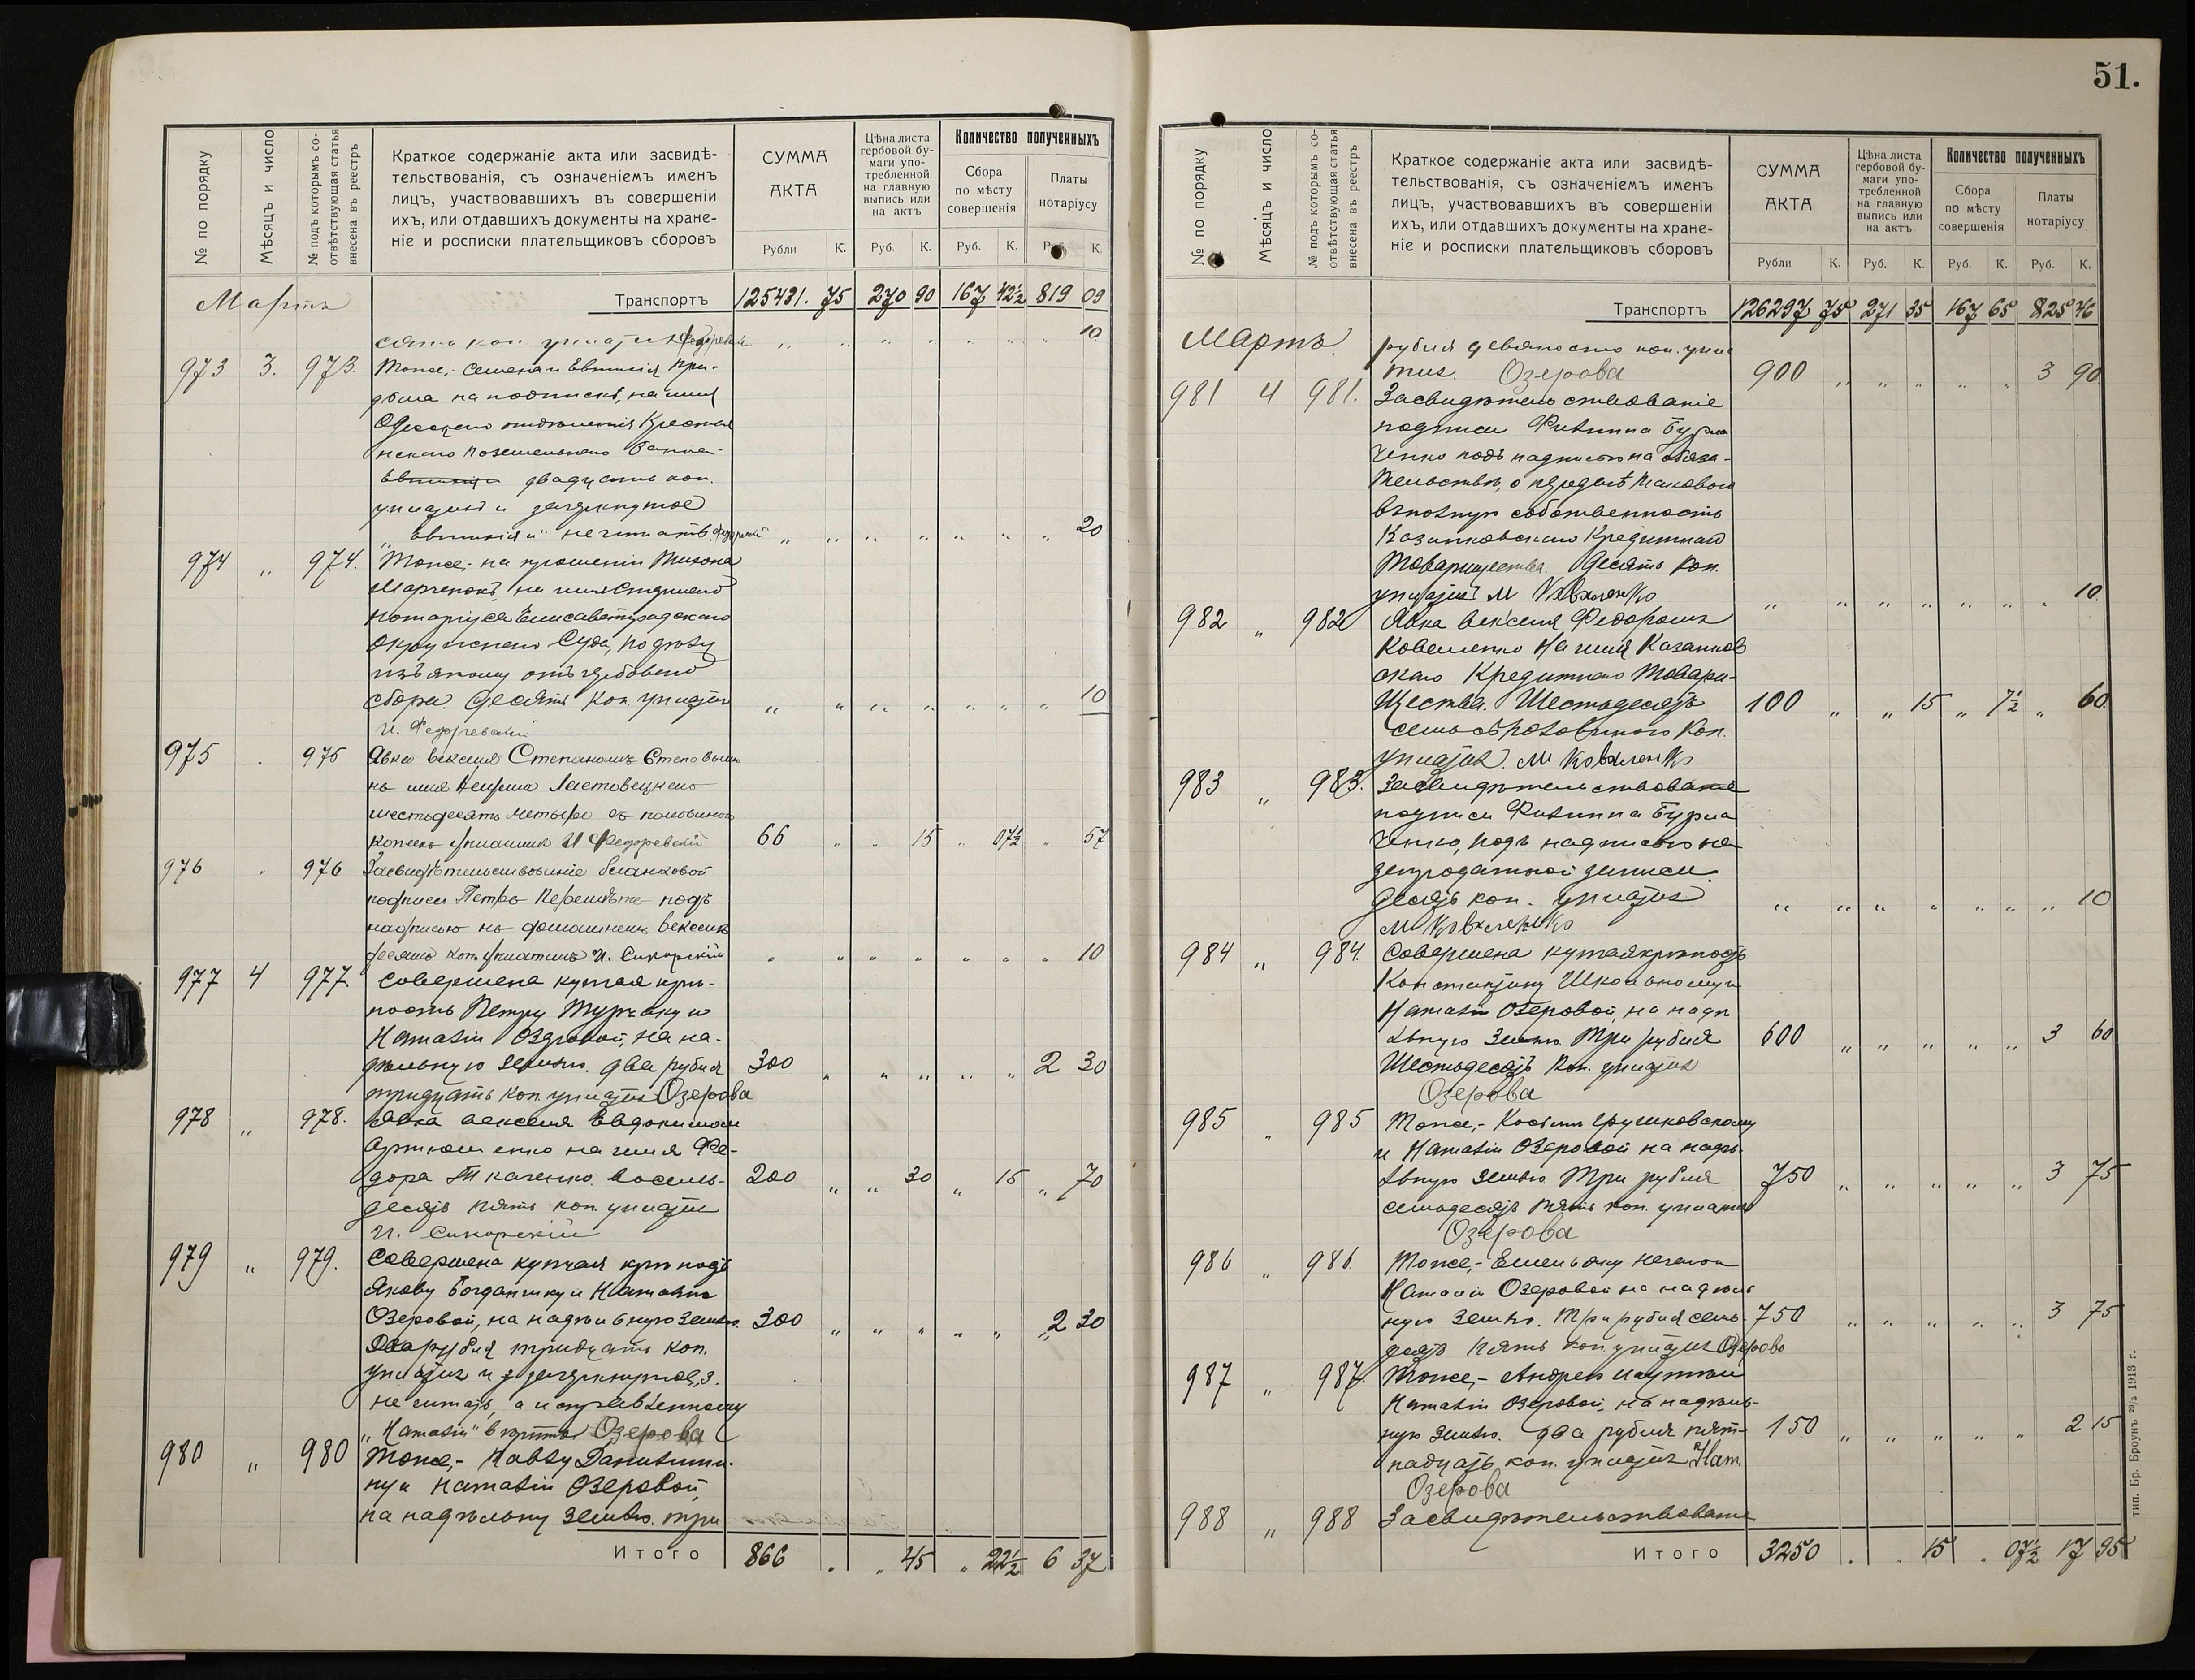 51.
№ по порядку
Мѣсяцъ и число
№ подъ которымъ со-
отвѣтствующая статья
внесена въ реестръ
Краткое содержаніе акта или засвидѣ-
тельствованія, съ означеніемъ именъ
лицъ, участвовавшихъ въ совершеніи
ихъ, или отдавшихъ документы на хране-
ніе и росписки плательщиковъ сборовъ
СУММА
АКТА
Рубли К.
Цѣна листа
гербовой бу-
маги упо-
требленной
на главную
выпись или
на актъ
Руб. К.
Количество полученныхъ
Сбора
по мѣсту
совершенія
Руб. К.
Платы
нотаріусу
К.
Мартъ
Транспортъ 125431. 75 270 90 167 42½ 819 09
коп 10
973 3. 973. Тоже, Семена и Евтихія При-
на подписи, на имя
Одесскаго отдѣленія Крестья
нскаго Поземельнаго Банка
двадцать коп.
и зачеркнутое
„Евтихія и" не читать 20
974 „ 974. Тоже, на прошеніи Тихона
на имя Старшаго
нотаріуса Елисаветградскаго
Окружнаго Суда, по дѣлу
изъятому отъ гербоваго
сбора десять коп. уплатилъ 10
И. Федоревскій
975 975 Явка векселя Степаномъ
на имя Ластовецкаго
шестьдесятъ четыре съ половиною
копѣекъ уплатилъ И Федоревскій 66 15 07½ 57
976 976 Засвидѣтельствованіе бланковой
подписи Петра подъ
надписью на домашнемъ векселѣ
десять коп. уплатилъ И. Сикорскій 10
977 4 977. Совершена купчая крѣ-
пость Петру Турчаку и
Наталіи Озеровой, на на-
дѣльную землю. два рубля 300 2 30
тридцать коп. уплатила Озерова
978 „ 978. Явка векселя Евдокимомъ
Артюшенко на имя Фе-
дора Ткаченко. восемь- 200 30 15 70
десятъ пять коп. уплатилъ
И. Сикорскій
979 „ 979. Совершена купчая крѣпость
Якову Богданчику и Наталіи
Озеровой, на надѣльную землю. 300 2 30
Два рубля тридцать коп.
уплатила и зачеркнутое „з"
не читать, а исправленному
„Наталіи" вѣрить Озерова
980 „ 980 Тоже,
ну и Наталіи Озеровой,
на надѣльну землю. три
Итого 866 . „ 45 „ 22½ 6 37
№ по порядку
Мѣсяцъ и число
№ подъ которымъ со-
отвѣтствующая статья
внесена въ реестръ
Краткое содержаніе акта или засвидѣ-
тельствованія, съ означеніемъ именъ
лицъ, участвовавшихъ въ совершеніи
ихъ, или отдавшихъ документы на хране-
ніе и росписки плательщиковъ сборовъ
СУММА
АКТА
Рубли К.
Цѣна листа
гербовой бу-
маги упо-
требленной
на главную
выпись или
на актъ
Руб. К.
Количество полученныхъ
Сбора
по мѣсту
совершенія
Руб. К.
Платы
нотаріусу
Руб. К.
Транспортъ 126297 75 271 35 167 65 825 46
Мартъ. рубля девяносто коп. упла
тила. Озерова 900 3 90
981 4 981. Засвидѣтельствованіе
подписи Филиппа Бурла
ченко подъ надписью на обяза-
тельствѣ, о передачѣ таковаго
въ полную собственность
Казанковскаго Кредитнаго
Товарищества. Десять коп.
уплатилъ М Коваленко 10.
982 „ 982 Явка векселя Федоромъ
Коваленко на имя Казанков
скаго Кредитнаго Товари-
щества. Шестьдесятъ 100 15 7½ 60
семь съ половиною коп.
уплатилъ. М Коваленко
983 „ 983. Засвидѣтельствованіе
подписи Филиппа Бурла
ченко, подъ надписью на
запродажной записи.
десять коп. уплатилъ 10
М Коваленко
984 „ 984. Совершена купчая крѣпость
Константину и
Наталіи Озеровой, на надѣ
льную землю. Три рубля 600 3 60
Шестьдесятъ коп. уплатила
Озерова
985 „ 985 Тоже,- Грушковскому
и Наталіи Озеровой на надѣ-
льную землю. Три рубля 750 3 75
семьдесятъ пять коп. уплатила
Озерова
986 „ 986. Тоже,- Емельяну
Наталіи Озеровой на надѣль
ную землю. Три рубля семь- 750 3 75
десятъ пять коп. уплатила Озерова
987 „ 987. Тоже,- Андрею
Наталіи Озеровой, на надѣль-
ную землю. два рубля пят- 150 2 15
надцать коп. уплатила Нат.
Озерова
988 „ 988 Засвидѣтельствованіе
Итого 3250 . . 15 . 07½ 17 95
тип. Бр. Броунъ 1913 г.